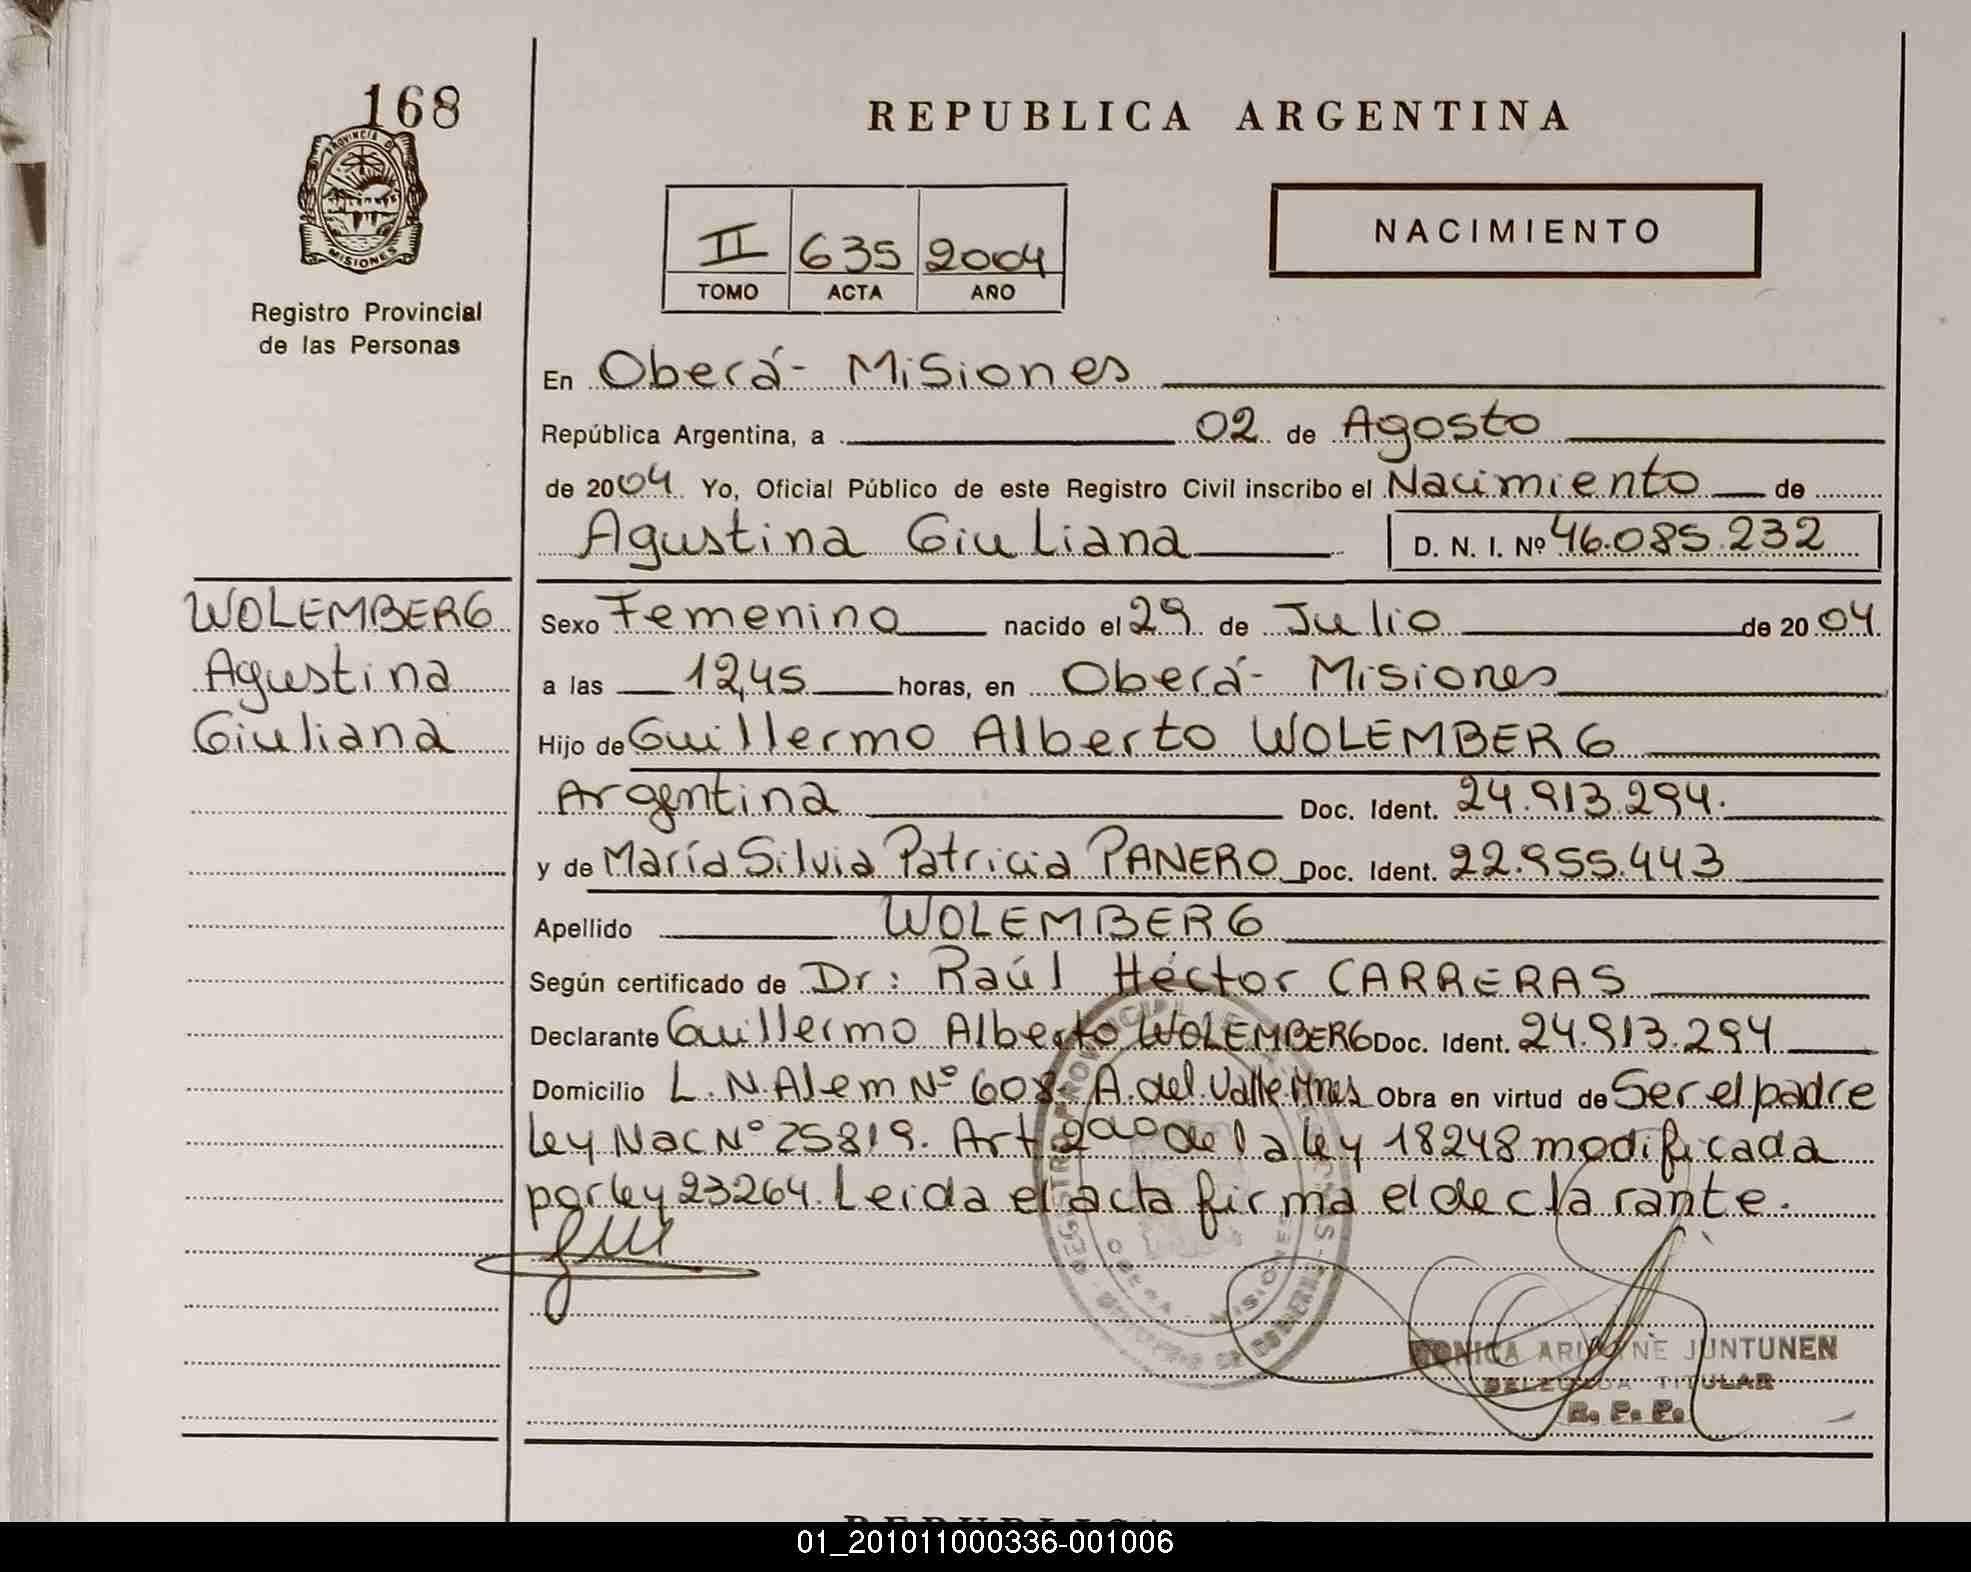 168
PROVINCIA DE
MISIONES
Registro Provincial
de las Personas
REPUBLICA ARGENTINA
II 635 2004
TOMO ACTA AÑO
NACIMIENTO
En Oberá - Misiones
República Argentina, a 02 de Agosto
de 2004 Yo, Oficial Público de este Registro Civil inscribo el Nacimiento de
Agustina Giuliana D. N. I. Nº 46.085.232
WOLEMBERG
Agustina
Giuliana
Sexo Femenino nacido el 29 de Julio de 2004
a las 12,45 horas, en Oberá - Misiones
Hijo de Guillermo Alberto WOLEMBERG
Argentina Doc. Ident. 24.913.294.
y de María Silvia Patricia PANERO Doc. Ident. 22.955.443
Apellido WOLEMBERG
Según certificado de Dr: Raúl Héctor CARRERAS
Declarante Guillermo Alberto WOLEMBERG Doc. Ident. 24.913.294
Domicilio L.N.Alem Nº 608 A.del Valle Mnes Obra en virtud de Ser el padre
Ley Nac Nº 25819. Art 2do de la ley 18248 modificada
por ley 23264. Leida el acta firma el declarante.
OBERA - MISIONES
MONICA ARIADNE JUNTUNEN
DELEGADA TITULAR
R. P. P.
01_201011000336-001006